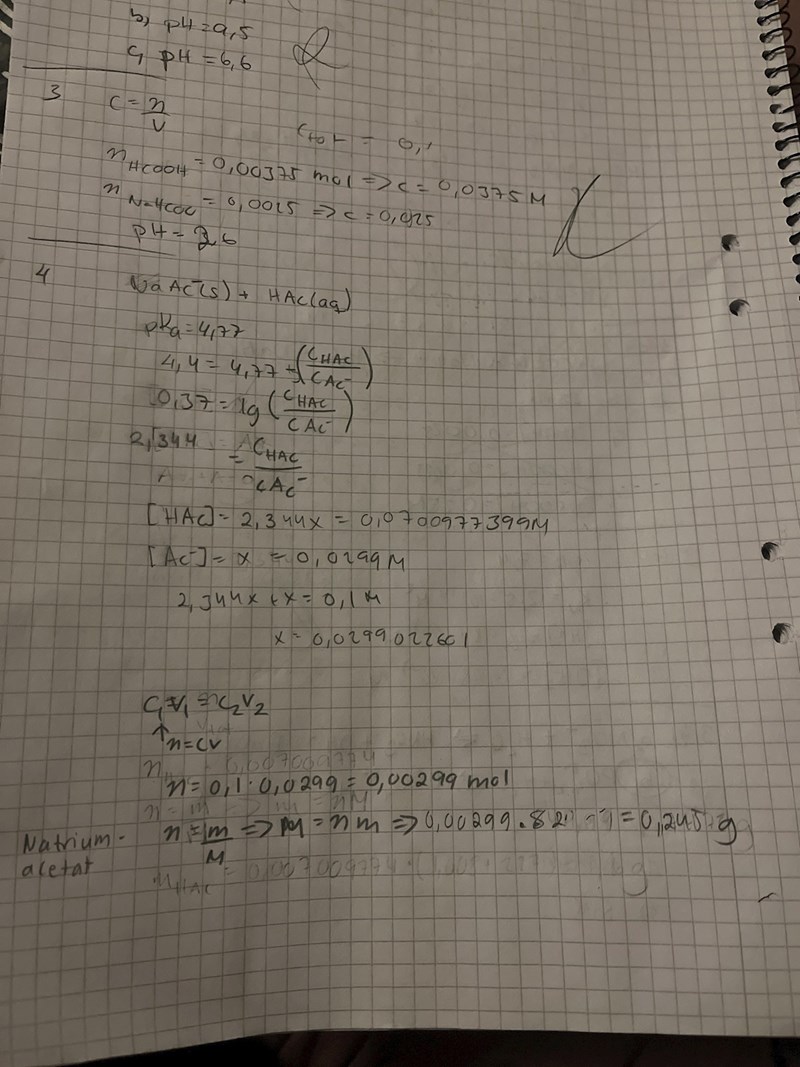 b) pH = 9,5
c) pH = 6,6
3
C = n/V
Ctot = 0,1
nHCOOH = 0,00375 mol => c = 0,0375 M
= 0,0025 => c = 0,025
pH =
4
NaAc(s) + HAc(aq)
pKa = 4,77
4,4 = 4,77 - (CHAC/CAC-)
0,37 = lg (CHAC/CAC-)
2,344 = CHAC/CAC-
[HAC] = 2,344x = 0,0700977399M
[Ac-] = x = 0,0299 M
2,344x + x = 0,1 M
x = 0,0299022601
C1V1 = C2V2
↑ n = CV
n = 0,1 · 0,0299 = 0,00299 mol
Natrium-
acetat
n = m/M => M = n m => 0,00299 · 82 = 0,245 g